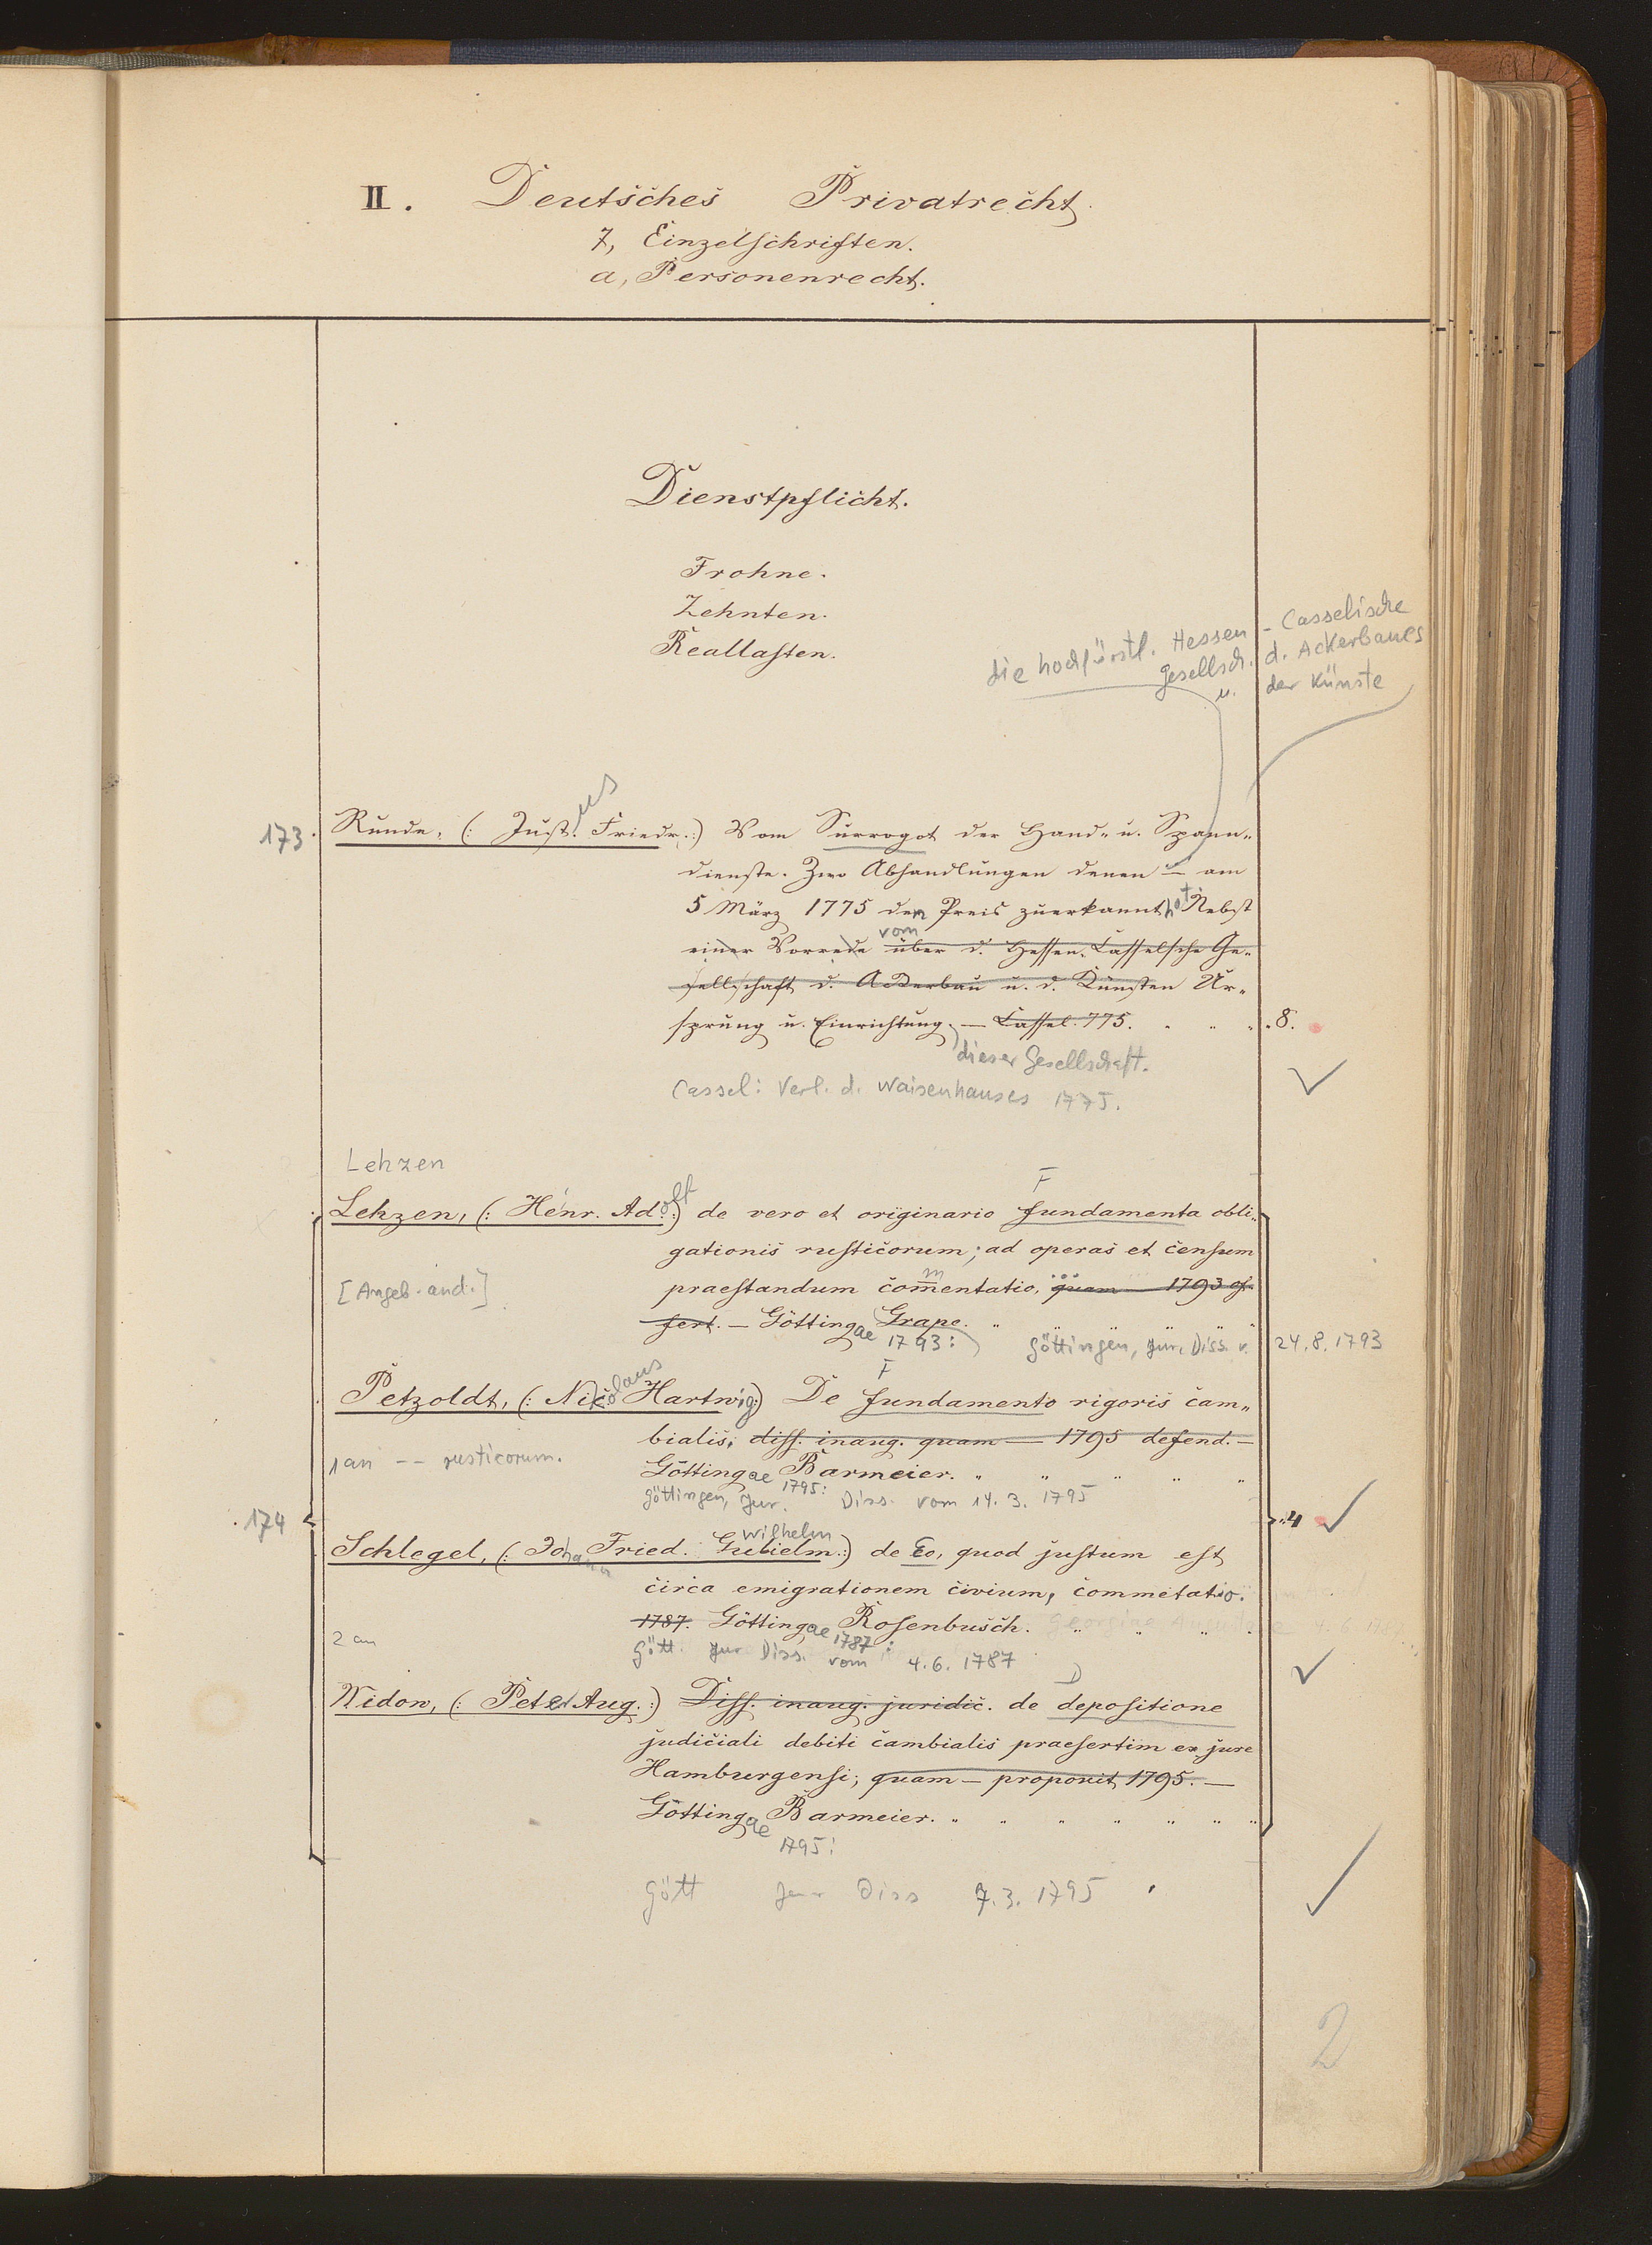 II. Deutsches Privatrecht.
7, Einzelschriften.
a, Personenrecht.
Dienstpflicht.
Frohne.
Zehnten.
Reallasten.
die hochfürstl. Hessen - Casselische
Gesellsch. d. Ackerbaues
u. der Künste
us
173. Runde, (: Just. Friedr. :) Vom Surrogat der Hand- u. Spann-
dienste. Zwo Abhandlungen denen — am
5 März 1775 den Preis zuerkannt hat Nebst
vom
einer Vorrede über d. Hessen-Casselsche Ge-
sellschaft d. Ackerbau u. d. Künsten Ur-
sprung u. Einrichtung. — Cassel. 775. " " " 8.
dieser Gesellschaft.
Cassel: Verl. d. Waisenhauses 1775.
Lehzen
F
Lehzen, (: Henr. Adolf :) de vero et originario fundamenta obli-
gationis rusticorum; ad operas et censum
[Angeb. and.] praestandum commentatio, quam — 1793 of-
fert. — Göttingae Grape. "
1793: Göttingen, Jur. Diss. v. 24.8.1793
F
Petzoldt, (: Nicolaus Hartwig :) De fundamento rigoris cam-
bialis; diss. inaug. quam — 1795 defend. —
1 an -- rusticorum. Göttingae Barmeier. " " " " "
1795:
Göttingen, Jur. Diss. vom 14.3.1795
174 4
Wilhelm
Schlegel, (: Johann Fried. Guilielm. :) de Eo, quod justum est
circa emigrationem civium, commetatio.
1787. Göttingae Rosenbusch. " " " "
1787:
2 an Gött. Jur Diss. vom 4.6.1787
D
Widon, (: Peter Aug. :) Diss. inaug. juridic. de depositione
judiciali debiti cambialis praesertim ex jure
Hamburgensi; quam — proponit 1795. —
Göttingae Barmeier. " " " " " " "
1795:
Gött Jur Diss 7.3.1795
2